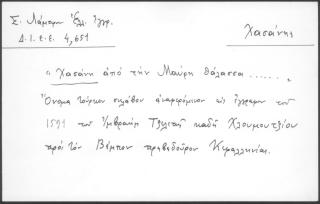 Σ. Λάμπρου Ἑλλ. ἔγγρ.
Δ.Ι.Ε.Ε. 4, 651
Χασάνης
"Χασάνη ἀπό τήν Μαύρη θάλασσα ......."
Ὄνομα τούρκου σκλάβου ἀναφερόμενον ὡς ἔγγραφον τοῦ
1591 τοῦ Ἰμβραήμ καδῆ Χλουμουτζίου
πρός τόν Βέμπον προβεδοῦρον Κεφαλληνίας.